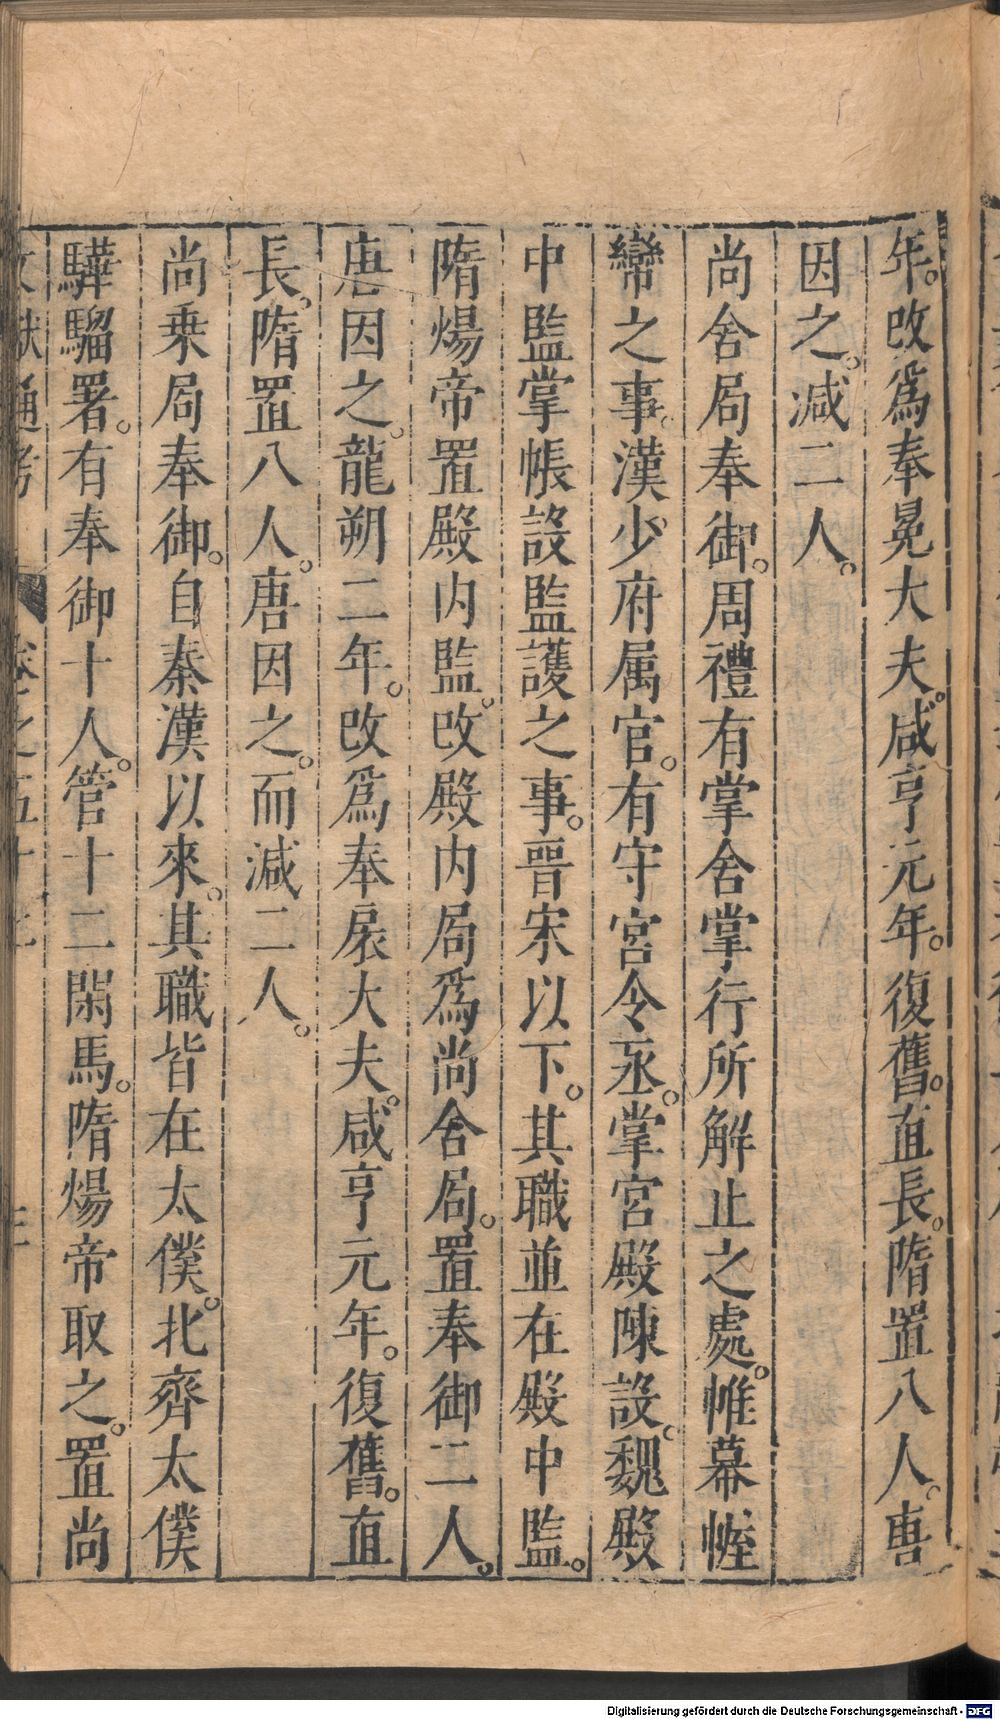 年。改爲奉冕大夫。咸亨元年。復舊。直長。隋置八人。唐
因之。減二人。
尚舍局奉御。周禮有掌舍掌行所解止之處。帷幕幄
帟之事。漢少府属官。有守宮令丞。掌宮殿陳設。魏殿
中監掌帳設監護之事。晉宋以下。其職並在殿中監。
隋煬帝置殿内監。改殿内局爲尚舍局。置奉御二人。
唐因之。龍朔二年。改爲奉扆大夫。咸亨元年。復舊。直
長。隋置八人。唐因之。而減二人。
尚乗局奉御。自秦漢以來。其職皆在太僕。北齊太僕
驊騮署。有奉御十人。管十二閑馬。隋煬帝取之。置尚
文獻通考 卷之五十七
Digitalisierung gefördert durch die Deutsche Forschungsgemeinschaft - DFG